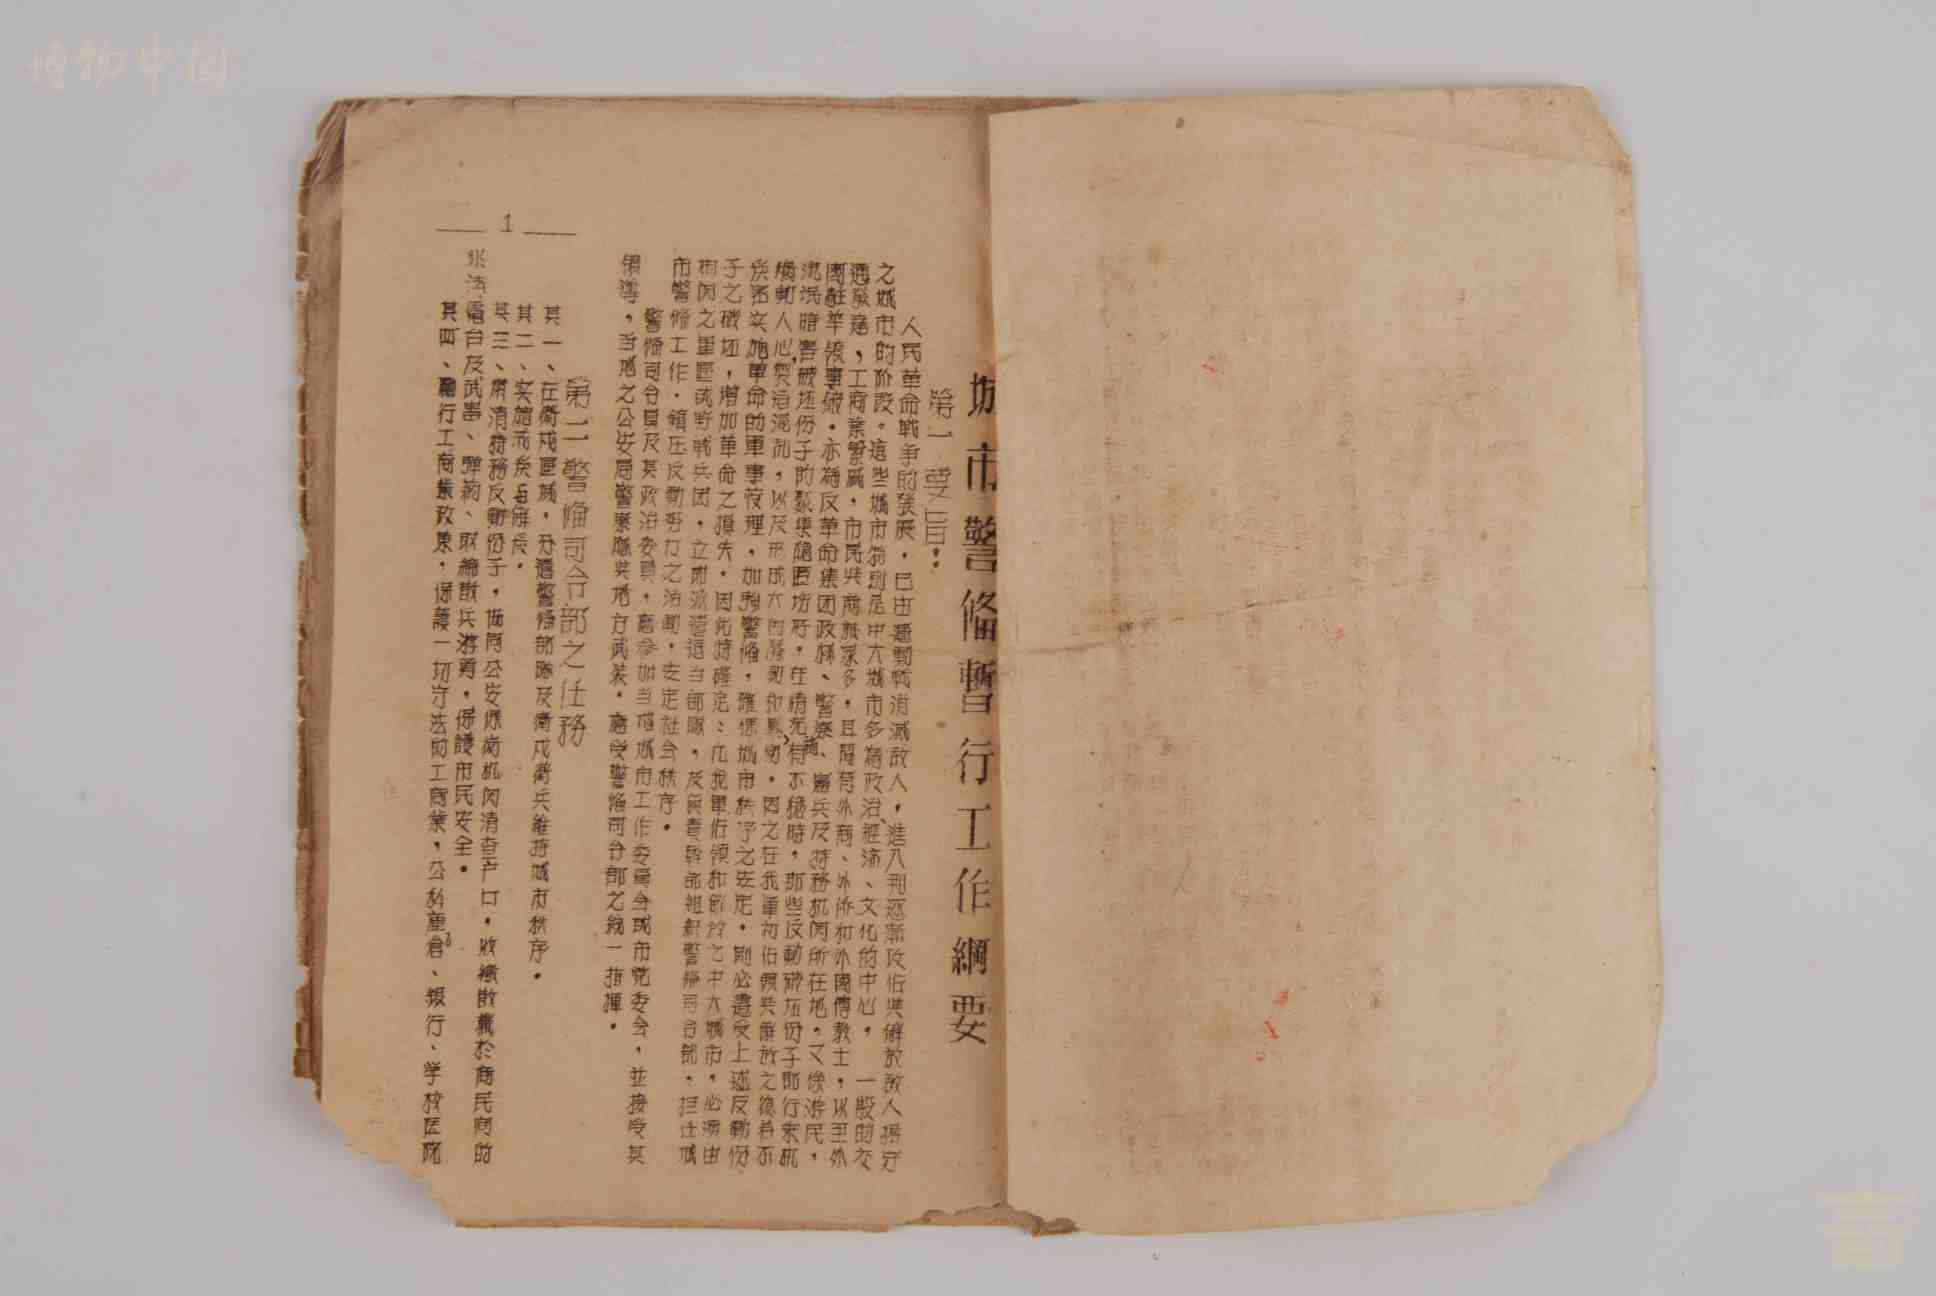 博物中国
城市警备暫行工作綱要
第一 要旨：
人民革命战争的發展，已由运動战消滅敌人，進入到逐渐攻佔與解放敌人据守
之城市的阶段。這些城市特別是中大城市多為政治、経済、文化的中心，一般的交
通發達，工商業繁盛，市民與商旅众多，且間有外商、外侨和外國傳教士，以至外
國駐華领事舘。亦為反革命集团政権、警察、憲兵及特務机関所在地。又係游民，
流氓暗害破坯份子的聚集隐匿場所。在情况稍有不稳時，那些反動破坯份子即行乘机
煽動人心，製造混乱，以及形成
施革命的軍事管理，加强警备，確保城市秩序之安定。則必遭受上述反動份
子之破坯，增加革命之損失。因此特確定：凡我軍佔領和解放之中大城市，必须由
相関之軍區或野战兵团，立即派遣适当部隊，及負責幹部組織警备司令部，担任城
市警备工作。鎮压反動势力之活動，安定社会秩序。
警备司令員及其政治委員，應参加当地城市工作委員会或市党委会，並接受其
領導，当地之公安局警察隊與地方武装。應受警备司令部之統一指揮。
第二 警备司令部之任務
其一、在衛戍區域，分遣警备部隊及衛戍衛兵維持城市秩序。
其二、实施戒炎与解炎。
其三、肃清特務反動份子，協同公安保衛机関清查户口，收繳散藏於商民間的
非法電台及武器、彈葯、取締散兵游勇，保護市民安全。
其四、執行工商業政策，保護一切守法的工商業，公私產倉、銀行、学校医院
1